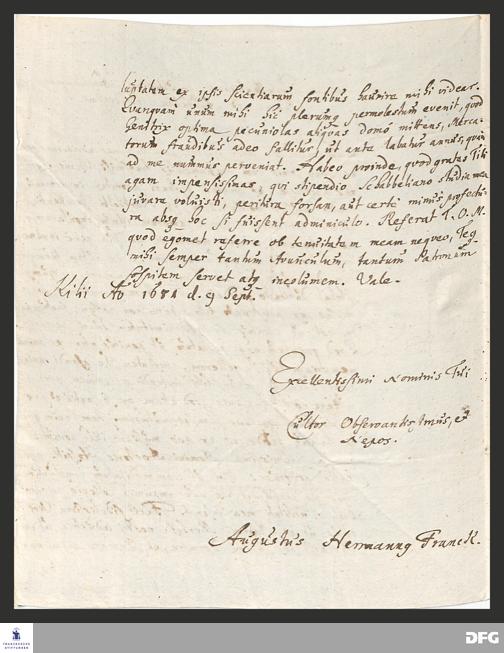 luptatem ex ipsis scientiarum fontibus haurire mihi videar.
Quanquam unum mihi hic plerumq permolestum evenit, quod
Genitrix optima pecuniolas aliquas domo mittens, Merca-
torum fraudibus adeo fallitur, ut ante labatur annus, quam
ad me nummus perveniat. Habeo proinde, quod gratas Tibi
agam impensissimas, qui stipendio Schabbeliano studia mea
juvare voluisti, peritura forsan, aut certè minus profectu-
ra absq hoc si fuissent adminiculo. Referat D. O. M.
quod egomet referre ob tenuitatem meam nequeo, Teq
mihi semper tantum Avunculum, tantum Patronum
sospitem servet atq incolumem. Vale.
Kilii Ao 1681 d. 9 Sept.
Excellentissimi Nominis Tui
Cultor Observantissimus, et
Nepos.
Augustus Hermannq Franck.
FRANCKESCHE
STIFTUNGEN
DFG